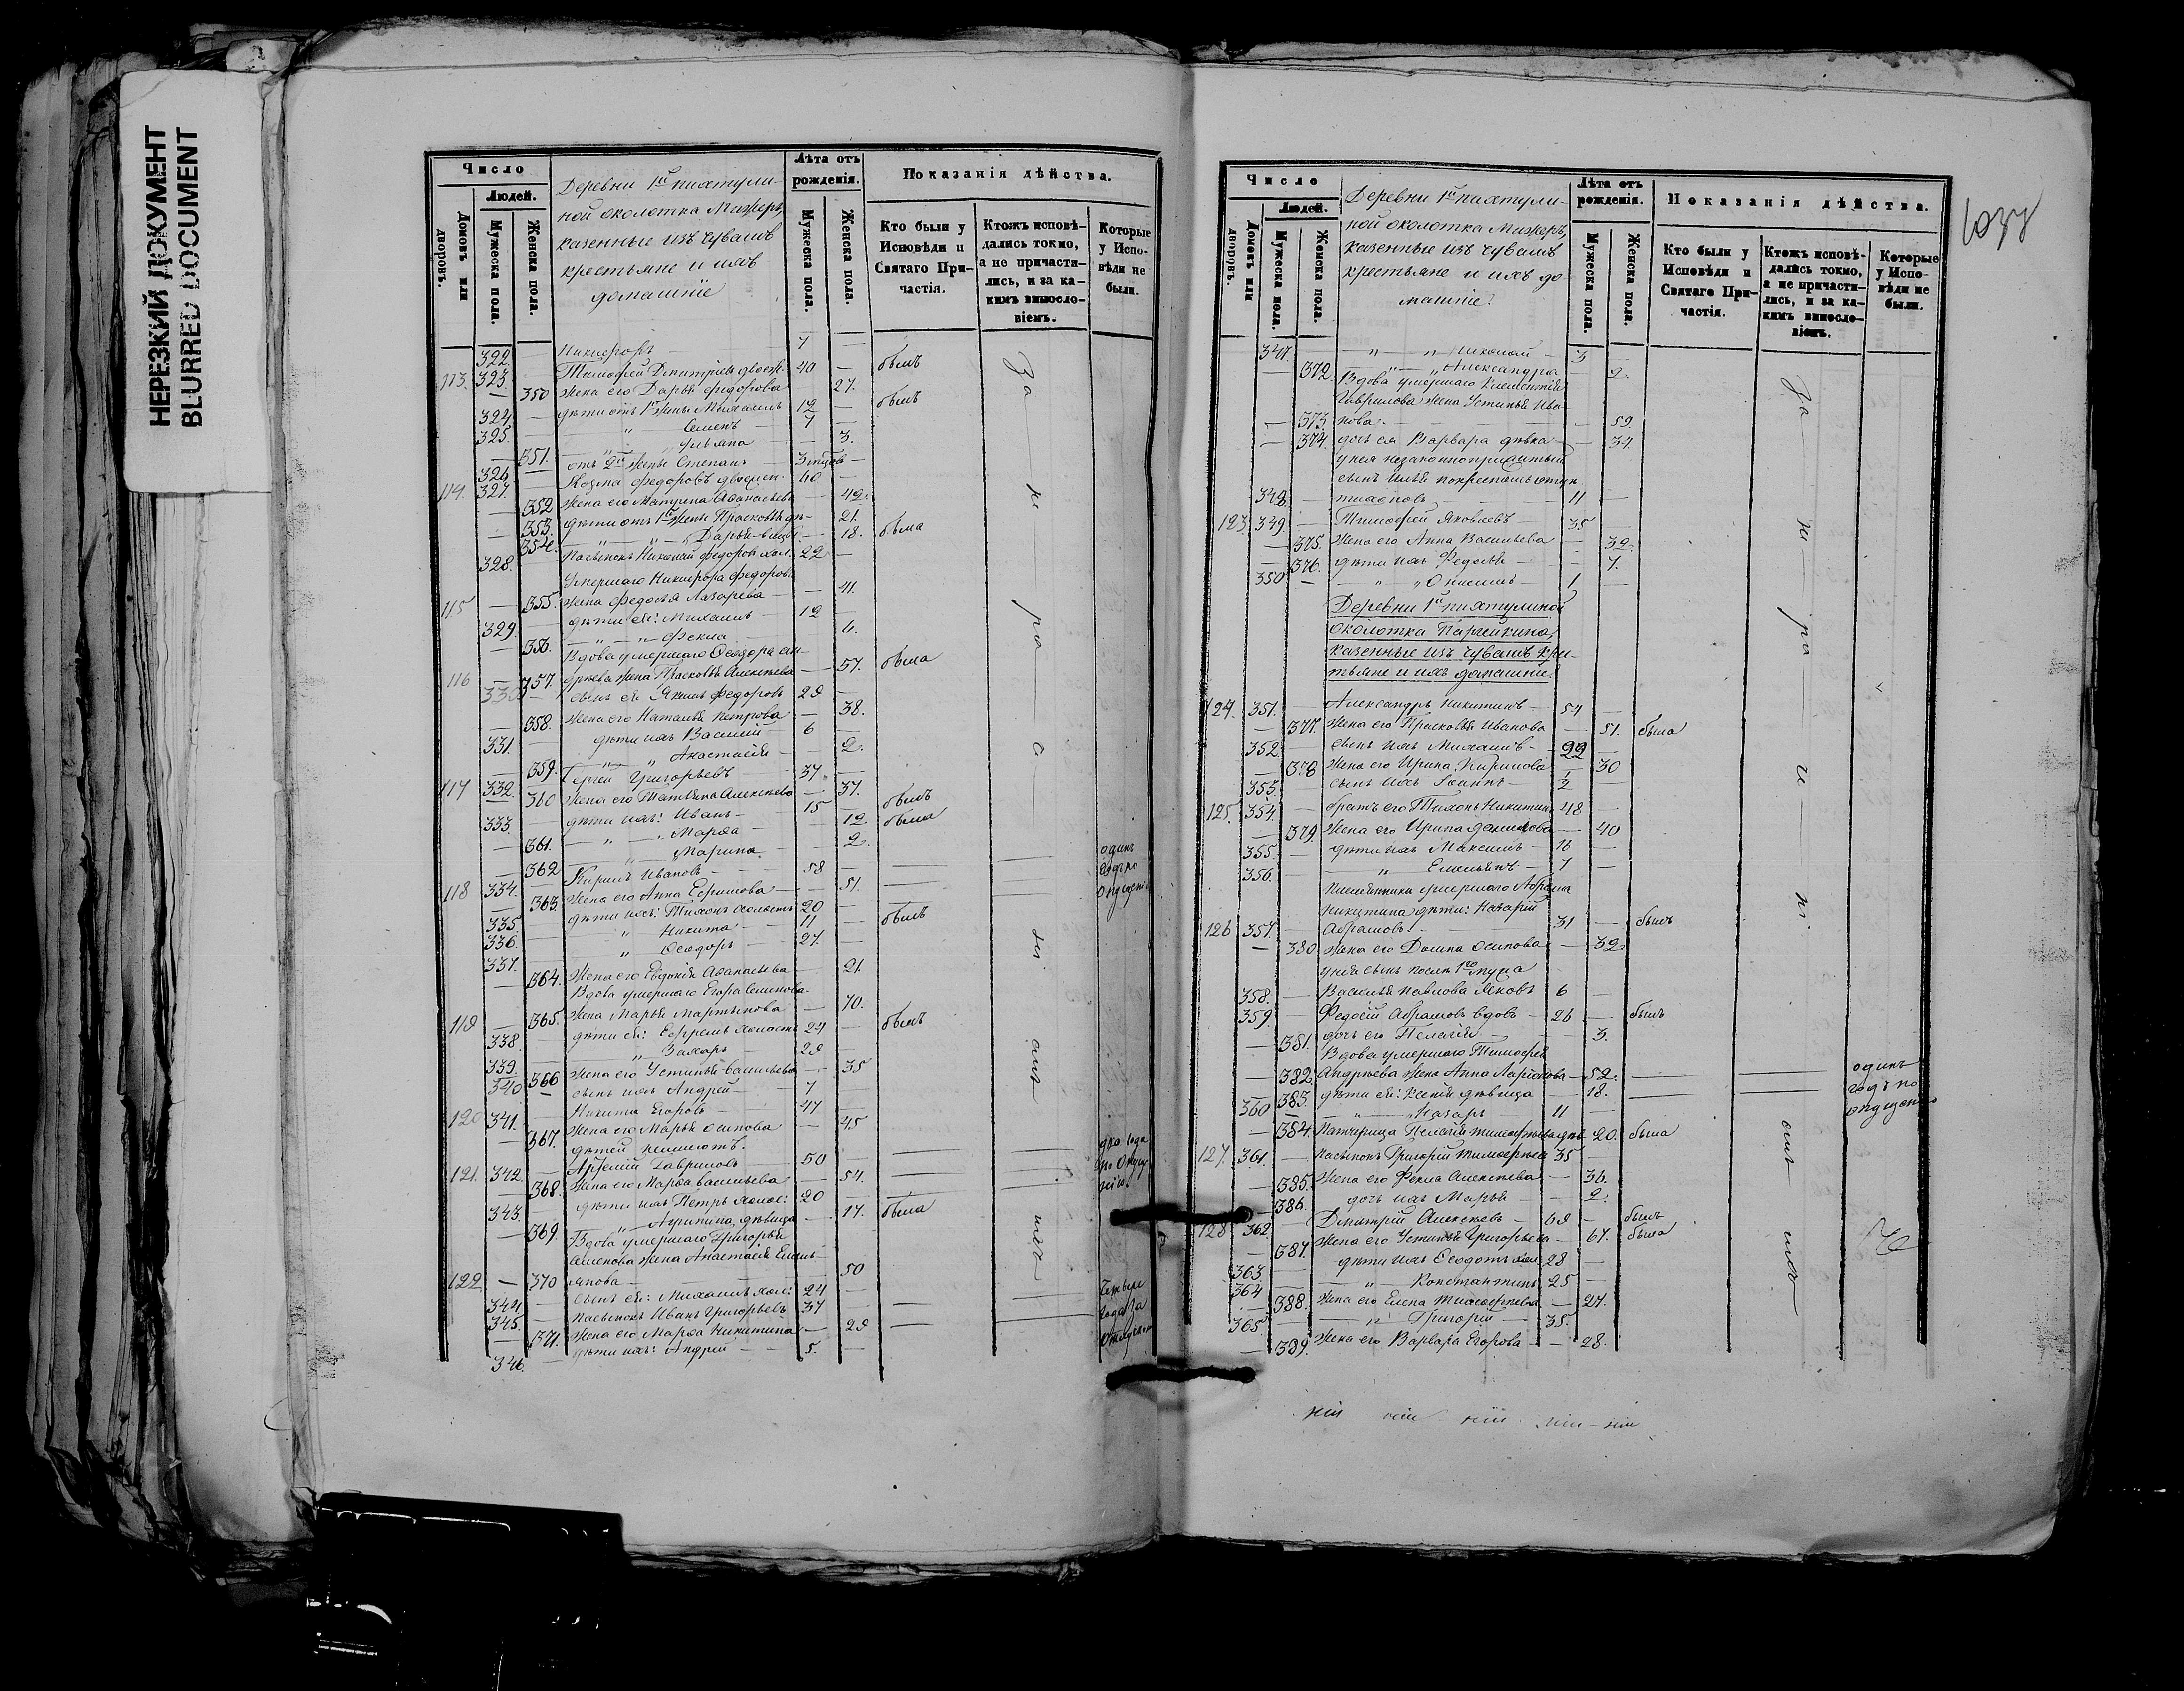 НЕРЕЗКИЙ ДОКУМЕНТ
BLURRED DOCUMENT
Число
Людей.
Домовъ или дворовъ.
Мужеска пола.
Женска пола.
Деревни 1й
ной околотка
казенные изъ чувашъ
крестьяне и ихъ
домашніе
Лѣта отъ рожденія.
Мужеска пола.
Женска пола.
Показанія дѣйства.
Кто были у Исповѣди и Святаго Причастія.
Ктожъ исповѣдались токмо, а не причастились, и за какимъ винословіемъ.
Которые у Исповѣди не были.
322. Никифоръ 7
113. 323. Тимофей Дмитріевъ 40 былъ
350 Жена его Дарья Федорова 27.
324. дѣти отъ 1й жены Михаилъ 12 былъ
325. " Семенъ 7
351. " Ульяна 3.
326. отъ 2й жены Степанъ
114. 327. Козма Федоровъ 40
352 Жена его Матрена Аѳанасьева 42.
353. дѣти отъ 1й жены Прасковья 21.
354. " Дарья 18. была
328. Пасынокъ Николай Федоровъ хол. 22
Умершаго Никифора Федорова
115 355. Жена Федосья Лазарева 41.
329. дѣти ея: Михаилъ 12
356. " Фекла 6.
Вдова умершаго Ѳеодора Ан-
116 357. дрѣева жена Прасковья Алексѣева 57. была
330 сынъ ея Якимъ Федоровъ 29
358. Жена его Наталья Петрова 38.
331. дѣти ихъ Василій 6
359. " Анастасія 2.
117 332. Сергѣй Григорьевъ 37.
360 Жена его Татьяна Алексѣева 37.
333. дѣти ихъ: Иванъ 15 былъ
361. " Марѳа 12. была
362 " Марина 2.
118 334. Кирилъ Ивановъ 58
363. Жена его Анна Ефимова 51.
335. дѣти ихъ: Тихонъ холостъ 20
336. " Никита 11 былъ
337. " Ѳеодоръ 27.
364. Жена его Евдокія Аѳанасьева 21.
одинъ
годъ по
опущен.
Вдова умершаго Егора Семенова
119 365. жена Марья Мартынова 70.
338. дѣти ея: Ефремъ холостъ 24 былъ
339. " Захаръ 29
366 Жена его Устинья Васильева 35
340 сынъ ихъ Андрей 7
120 341. Никита Егоровъ 47
367. Жена его Марья Осипова 45
дѣтей неимеютъ.
121. 342. Арсеній Гавриловъ 50
368. Жена его Марѳа Васильева 54.
343. дѣти ихъ Петръ холос: 20
369 " Агрипина, дѣвица 17. была
два года
по опущ
нію.
Вдова умершаго Григорья
Семенова жена Анастасія Емель-
122. 370 янова 50
344. сынъ ея: Михаилъ хол: 24
345. Пасынокъ Иванъ Григорьевъ 37
371. Жена его Марѳа Никитина 29
346. дѣти ихъ: Андрей 5.
Число
Людей.
Домовъ или дворовъ.
Мужеска пола.
Женска пола.
Деревни 1й
ной околотка
казенные изъ чувашъ
крестьяне и ихъ до
машніе.
Лѣта отъ рожденія.
Мужеска пола.
Женска пола.
Показанія дѣйства.
Кто были у Исповѣди и Святаго Причастія.
Ктожъ исповѣдались токмо, а не причастились, и за какимъ винословіемъ.
Которые у Исповѣди не были.
347. " " Николай 3
372. " " Александра 2.
Вдова умершаго Климентія
Гаврилова жена Устинья Ива
373. нова 59.
374. дочь ея Варвара дѣвка
у нея незаконноприжитый
сынъ Илья
348. 11
123. 349. Тимофей Яковлевъ 35
375. Жена его Анна Васильева 32.
376. дѣти ихъ Федосья 7.
350 " " Онисимъ 1
Деревни 1й
околотка
казенные изъ чувашъ кре-
тьяне и ихъ домашніе.
124. 351. Александръ Никитинъ 54
377. Жена его Прасковья Иванова 51. была
352. сынъ ихъ Михаилъ 22
378 Жена его Ирина Кирилова 30
353. сынъ ихъ Іоаннъ 1/2
125. 354. братъ его Тихонъ Никитинъ 48
379. Жена его Ирина Данилова 40
355. дѣти ихъ Максимъ 16
356. " Емельянъ 7
Племянники умершаго Абрама
Никитина дѣти: Назарій
126 357. Абрамовъ 31 былъ
380 Жена его Домна Осипова 32.
у нея сынъ послѣ 1го мужа
358. Василья Павлова Яковъ 6
359. Федосій Абрамовъ вдовъ 26 былъ
381. дочь его Пелагія 3.
Вдова умершаго Тимофея
382. Андрѣева жена Анна Ларіонова 52.
383. дѣти ея: Ксенія дѣвица 18.
360 " Назаръ 11
одинъ
годъ по
опущен
384. Патчерица Пелагія Тимофѣева дѣв 20. была
127. 361. Пасынокъ Григорій Тимофѣевъ 35
385. Жена его Фекла Алексѣева 36.
386. дочь ихъ Марья 2.
128 362 Дмитрій Алексѣевъ 69 былъ
387. Жена его Устинья Григорьева 67. была
363 дѣти ихъ Ѳеодотъ хол 28
364 " Константинъ 25
388. Жена его Елена Тимофѣева 27.
365. " Григорій 35.
389. Жена его Варвара Егорова 28.